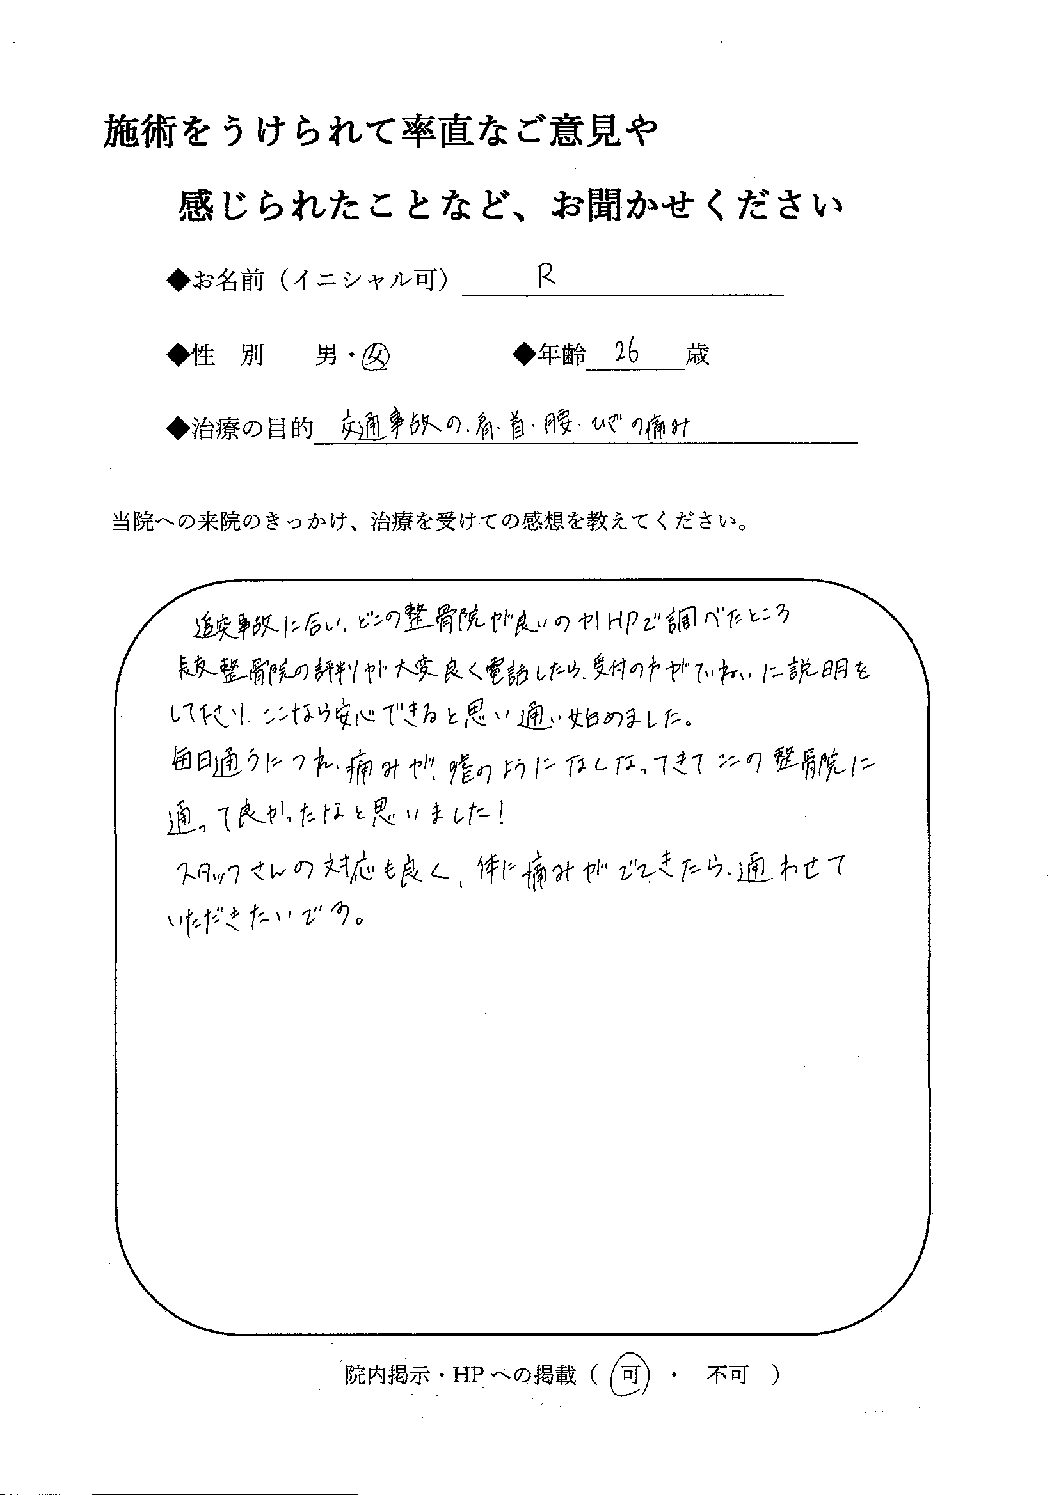 施術をうけられて率直なご意見や
感じられたことなど、お聞かせください
◆お名前（イニシャル可） R
◆性 別 男・女 ◆年齢 26 歳
◆治療の目的 交通事故の、肩・首・腰・ひざの痛み
当院への来院のきっかけ、治療を受けての感想を教えてください。
追突事故に合い、どこの整骨院が良いのかHPで調べたところ
整骨院の評判が大変良く電話したら、受付の方がていねいに説明を
して下さり、ここなら安心できると思い通い始めました。
毎日通うにつれ、痛みが、嘘のようになくなってきてこの整骨院に
通って良かったなと思いました！
スタッフさんの対応も良く、体に痛みがでてきたら、通わせて
いただきたいです。
院内掲示・HPへの掲載（ 可 ・ 不可 ）